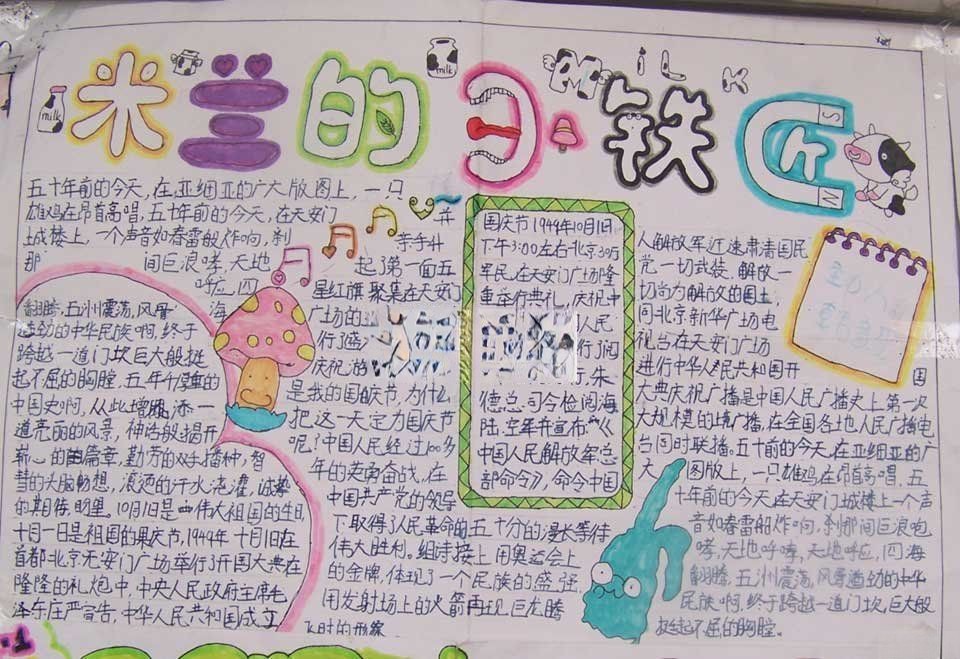 米兰的日铁匠
milk
milk
MiLK
S
N
五十年前的今天,在亚细亚的广大版图上,一只
雄鸡在昂首高唱,五十年前的今天,在天安门
城楼上,一个声音如春雷般炸响,刹
那
间巨浪哮,天地
呼应,四
海
翻腾,五洲震荡,风
动的中华民族啊,终于
跨越一道门坎巨大般挺
起不屈的胸膛,五
中国史啊,从此增添一
道亮丽的风景,神话般揭开
崭心的篇章,勤劳的双手播种,智
慧的大脑畅想,滚烫的汗水浇灌,诚挚
的期待,明里。10月1日是伟大祖国的生日
十月一日是祖国的果庆节,1949年十月1日在
首都北京天安门广场举行开国大典在
隆隆的礼炮中,中央人民政府主席毛
泽东庄严宣告,中华人民共和国成立
并
等手升
起了第一面五
星红旗,聚集在天安门
广场的
行
庆祝的
是我的国庆节,为什么
把这一天定为国庆节
呢?中国人民经过100多
年的英勇奋战,在
中国共产党的领导
下取得人民革命的
伟大胜利。
五十分的漫长等待
上用奥运会上
的金牌,体现了一个民族的盛强
用发射场上的火箭再现巨龙腾
飞时的形象
国庆节1949年10月1日
下午3:00左右北京30万
军民,在天安门广场隆
重举行典礼,庆祝中
人民
行阅
朱
德总司令检阅海
陆、空军并宣布《
中国人民解放军总
部命令》,命令中国
人解放军迅速肃清国民
党一切武装、解放一
切尚力解放的国土,
同北京新华广场电
视台在天安门广场
进行中华人民共和国开
国
大典庆祝广播是中国人民广播史上第一次
大规模的境广播,在全国各地人民广播电
台同时联播。五十前的今天,在亚细亚的广
大
图版上,一只雄鸡在昂首高唱,五
十年前的今天在天安门城楼上一个声
音如春雷般炸响,刹那间巨浪咆
哮,天地呼哮,天地呼应,四海
翻腾,五洲震荡,风骨遒劲的中华
民族啊,终于跨越一道门坎,巨大般
挺起不屈的胸膛。